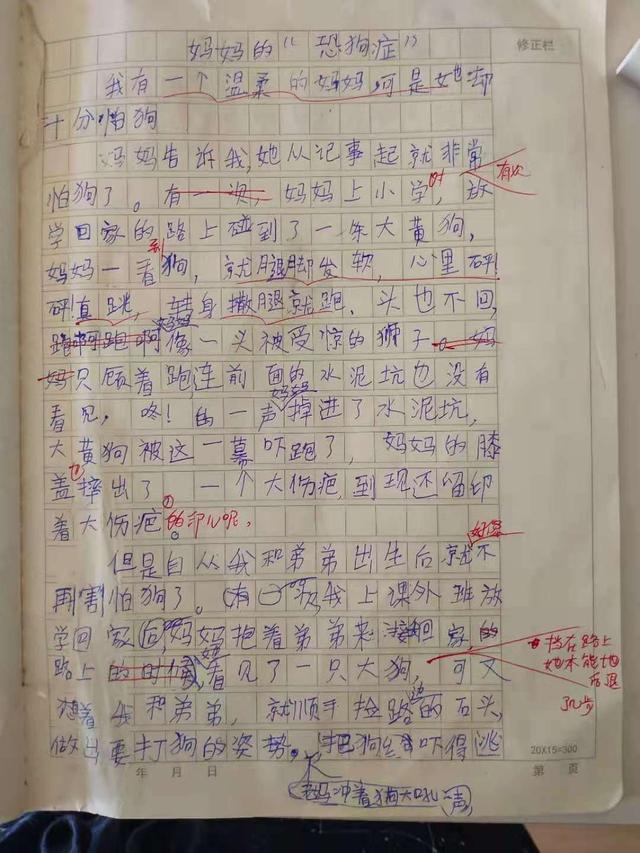 妈妈的“恐狗症”
修正栏
我有一个温柔的妈妈,可是她却
十分怕狗
妈妈告诉我,她从记事起就非常
有次
怕狗了。有一次,妈妈上小学时,放
学回家的路上碰到了一条大黄狗,
妈妈一看到狗,就腿脚发软,心里砰!
砰!直跳,转身撒腿就跑,头也不回,
跑啊跑啊像一头被受惊的狮子。妈
妈只顾着跑,连前面的水泥坑也没有
看见,咚!的一声妈妈掉进了水泥坑,
大黄狗被这一幕吓跑了,妈妈的膝
盖摔出了一个大伤疤,到现还留印
着大伤疤的印儿呢。
但是自从我和弟弟出生后就不
再害怕狗了。有一次我上课外班放
学回家后,妈妈抱着弟弟来回家的
路上的时候,看见了一只大狗,可又
挡在路上
她本能地
后退
了几步
想着我和弟弟,就顺手捡路边的石头,
做出要打狗的姿势。把狗吓得逃
妈妈冲着狗大吼一声
年 月 日
20X15=300
第 页